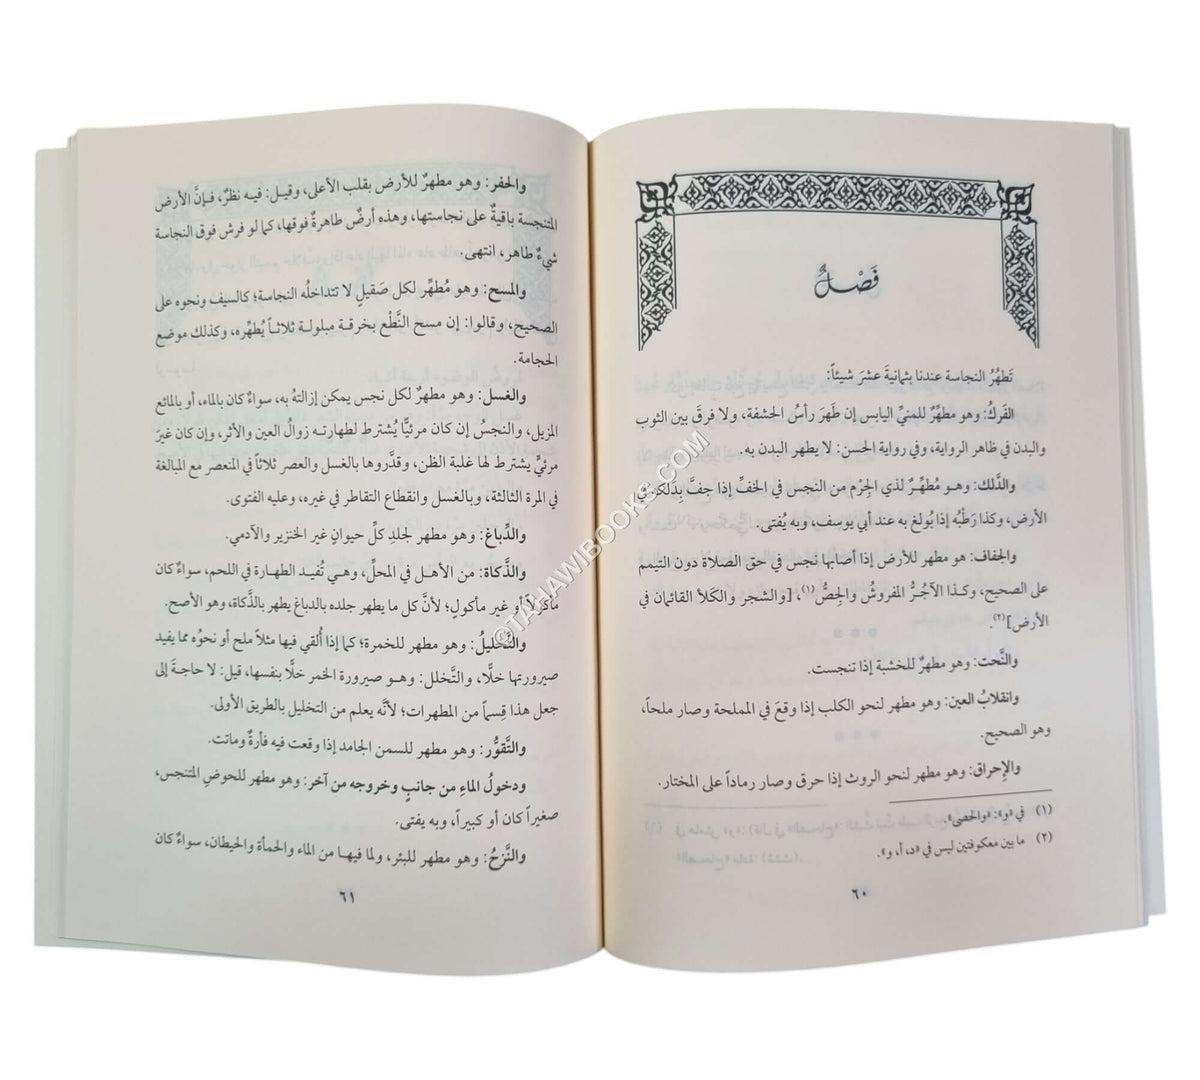 فَصْلٌ
تَطهُرُ النجاسة عندنا بثمانيةَ عشرَ شيئاً:
الفَركُ: وهو مطهِّرٌ للمنيِّ اليابس إن طَهَرَ رأسُ الحشفة، ولا فرقَ بين الثوب
والبدن في ظاهر الرواية، وفي رواية الحسن: لا يطهر البدن به.
والدَّلك: وهو مُطهِّرٌ لذي الجِرْم من النجس في الخفِّ إذا جفَّ بِدَلكه في
الأرض، وكذا رَطْبُه إذا بُولغ به عند أبي يوسف، وبه يُفتى.
والجفاف: هو مطهر للأرض إذا أصابها نجس في حق الصلاة دون التيمم
على الصحيح، وكذا الآجُرُّ المفروشُ والجِصُّ(١)، [والشجر والكَلأ القائمان في
الأرض](٢).
والنَّحت: وهو مطهرٌ للخشبة إذا تنجست.
وانقلابُ العين: وهو مطهر لنحو الكلب إذا وقعَ في المملحة وصار ملحاً،
وهو الصحيح.
والإحراق: وهو مطهر لنحو الروث إذا حرق وصار رماداً على المختار.
(١) في «و»: «والحصى».
(٢) ما بين معكوفتين ليس في «د، أ، و».
٦٠
والحفر: وهو مطهرٌ للأرض بقلب الأعلى، وقيل: فيه نظرٌ، فإنَّ الأرض
المتنجسة باقيةٌ على نجاستها، وهذه أرضٌ طاهرةٌ فوقها، كما لو فرش فوق النجاسة
شيءٌ طاهر، انتهى.
والمسح: وهو مُطهِّر لكل صَقيلٍ لا تتداخلُه النجاسة؛ كالسيف ونحوه على
الصحيح، وقالوا: إن مسح النَّطْع بخرقة مبلولة ثلاثاً يُطهِّره، وكذلك موضع
الحجامة.
والغسل: وهو مطهرٌ لكل نجس يمكن إزالتهُ به، سواءٌ كان بالماء، أو بالمائع
المزيل، والنجسُ إن كان مرئيًّا يُشترط لطهارته زوالُ العين والأثر، وإن كان غيرَ
مرئيٍّ يشترط لها غلبة الظن، وقدَّروها بالغسل والعصر ثلاثاً في المنعصر مع المبالغة
في المرة الثالثة، وبالغسل وانقطاع التقاطر في غيره، وعليه الفتوى.
والدِّباغ: وهو مطهر لجلدِ كلِّ حيوانٍ غير الخنزير والآدمي.
والذَّكاة: من الأهل في المحلِّ، وهي تُفيد الطهارة في اللحم، سواءٌ كان
مأكولاً أو غير مأكولٍ؛ لأنَّ كل ما يطهر جلده بالدباغ يطهر بالذَّكاة، وهو الأصح.
والتَّخليلُ: وهو مطهر للخمرة؛ كما إذا أُلقي فيها مثلاً ملح أو نحوُه مما يفيد
صيرورتها خلًّا، والتَّخلل: وهو صيرورة الخمر خلًّا بنفسها، قيل: لا حاجةَ إلى
جعل هذا قِسماً من المطهرات؛ لأنَّه يعلم من التخليل بالطريق الأولى.
والتَّقوُّر: وهو مطهر للسمن الجامد إذا وقعت فيه فأرةٌ وماتت.
ودخولُ الماءِ من جانبٍ وخروجه من آخر: وهو مطهر للحوضِ المتنجس،
صغيراً كان أو كبيراً، وبه يفتى.
والنَّزحُ: وهو مطهر للبئر، ولما فيها من الماء والحمأة والحيطان، سواءٌ كان
٦١
©TAHAWIBOOKS.COM